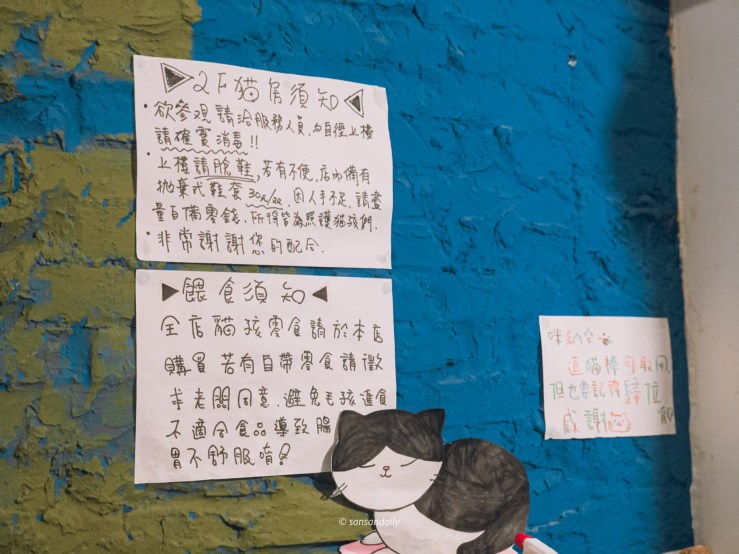 2F貓房須知
•欲參觀請洽服務人員,勿自徑上樓
請確實消毒!!
•上樓請脫鞋,若有不便,店內備有
拋棄式鞋套30元/双,因人手不足,請盡
量自備零錢.所得皆為照護貓孩們.
•非常謝謝您的配合.
餵食須知
全店貓孩零食請於本店
購買 若有自帶零食請徵
求老闆同意.避免毛孩誤食
不適合食品導致腸
胃不舒服唷!
逗貓棒可取用
但也要記得歸位
感謝
© sansandaily